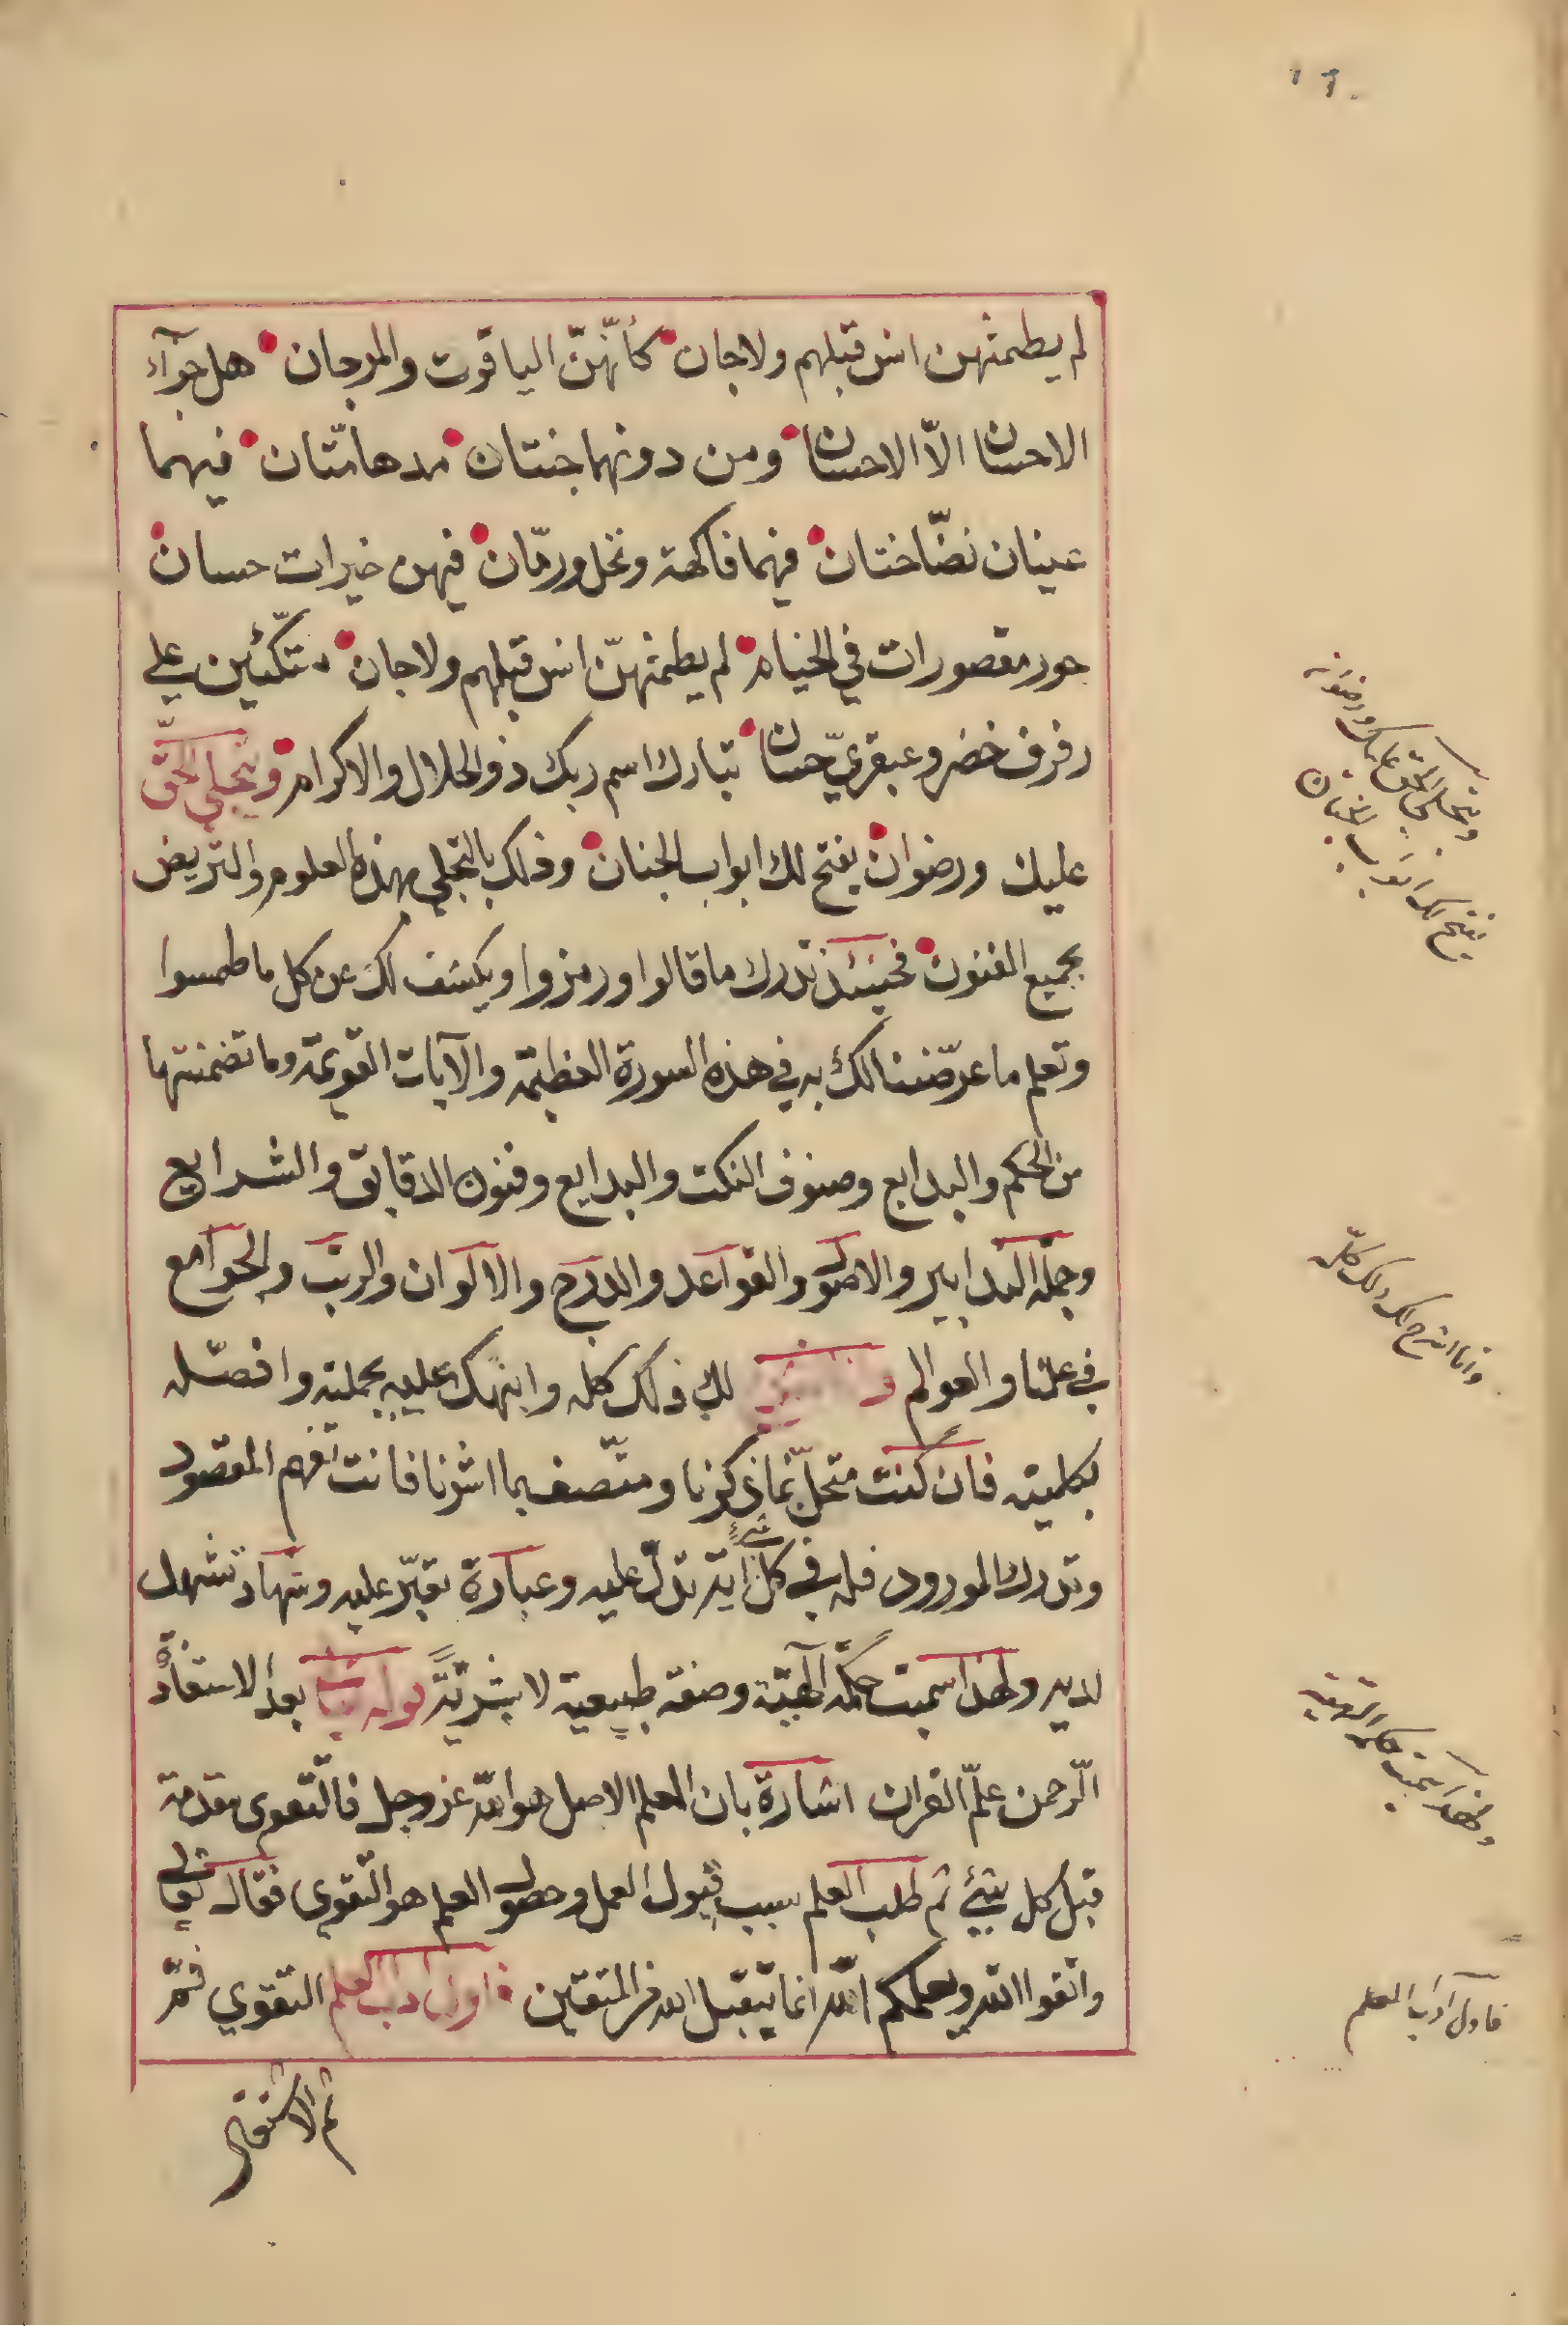 ١٦٠
لم يطمثهن انس قبلهم ولا جان كأنّهنّ الياقوت والمرجان هل جزآء
الاحسان الاّ الاحسان ومن دونهما جنتان مدهامّتان فيهما
عينان نضّاختان فيهما فاكهة ونخل ورمّان فيهن خيرات حسان
حور مقصورات في الخيام لم يطمثهنّ انس قبلهم ولا جان متكّئين على
رفرف خضر وعبقريّ حسان تبارك اسم ربك ذو الجلال والاكرام ويتجلي الحقّ
عليك ورضوان يفتح لك ابواب الجنان وذلك بالتجلي بهذه العلوم والتريض
بجميع الفنون فحينئذ تدرك ما قالوا ورمزوا ويكشف لك عن كل ما طمسوا
وتعلم ما عرّضنا لك به في هذه السورة العظيمة والآيات القويمة وما تضمنتها
من الحكم والبدايع وصنوف النكت والبدايع وفنون الدقايق والشرايع
وجملة التدابير والاصول والقواعد والدرج والالوان والرتب والجوامع
في علمنا والعوالم لك ذلك كله وانبهك عليه بجملته وافصّله
بكليته فان كنت متحلّ بما ذكرنا ومتّصف بما اشرنا فانت تفهم المقصود
وتدرك المورود فله في كل شئ اية تدلّ عليه وعبارة تعبّر عليه وشهادة تشهد
لديه ولهذا سميت حكمة الهيّة وصنعة طبيعية لا بشريّة بعد الاستعاذة
الرّحمن علّم القران اشارة بان المعلم الاصل هو الله عز وجل فالتّقوى مقدمة
قبل كل شئ ثم طلب العلم سبب قبول العمل وحصول العلم هو التّقوى فقال تعالى
واتّقوا الله ويعلمكم الله انما يتقبل الله من المتقين فاول اداب العلم التقوي ثمّ
ثم الاستغنى
ويتجلى الحق عليك ورضوانه
يفتح لك ابواب الجنان
وانا اشرح لك ذلك كله
ولهذا سميت حكمة الهية
فاول آداب المعلم